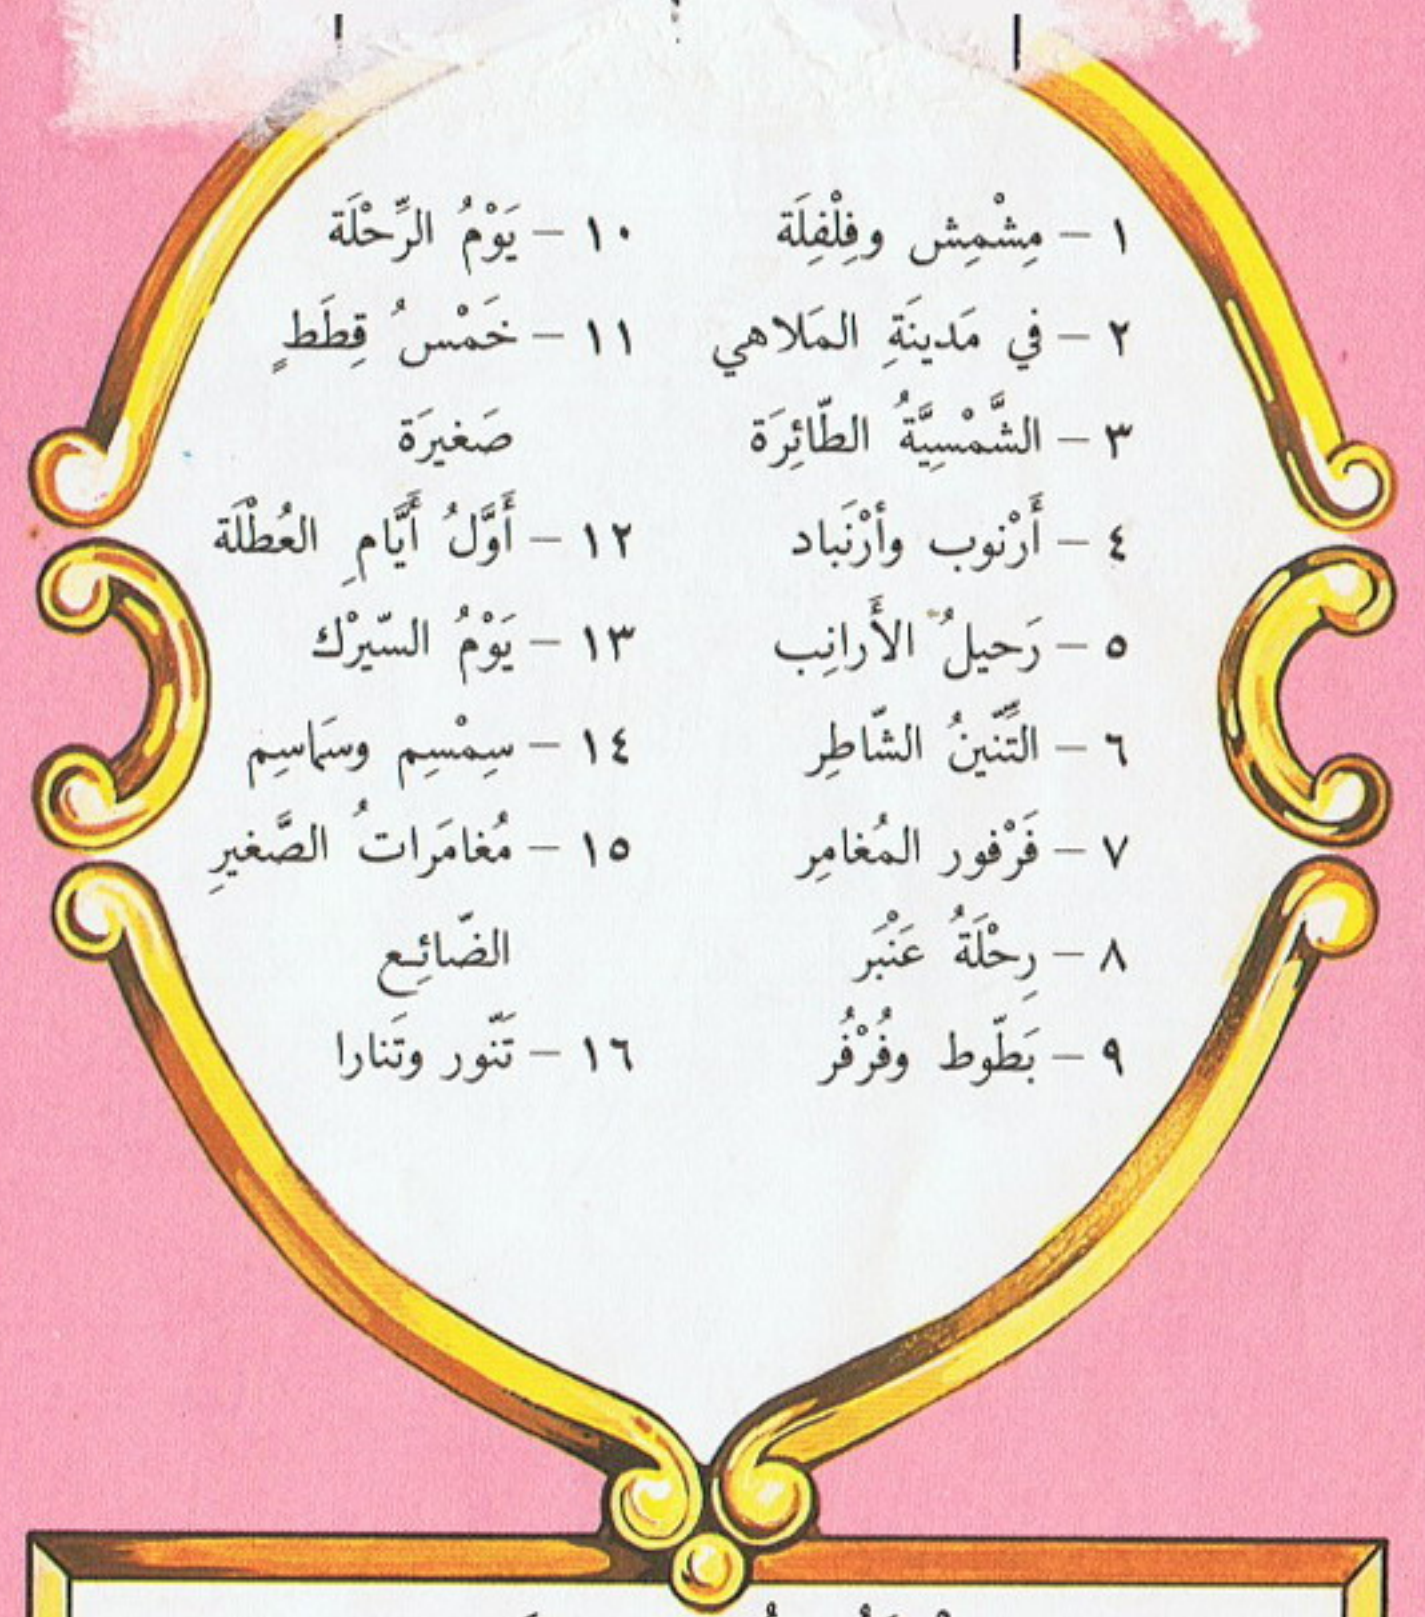 ١ – مِشْمِش وفِلْفِلَة
٢ – في مَدينَةِ المَلاهي
٣ – الشَّمْسِيَّةُ الطّائِرَة
٤ – أَرْنوب وأرْنَباد
٥ – رَحيلُ الأَرانِب
٦ – التِّنّينُ الشّاطِر
٧ – فَرْفور المُغامِر
٨ – رِحْلَةُ عَنْبَر
٩ – بَطّوط وفُرْفُر
١٠ – يَوْمُ الرِّحْلَة
١١ – خَمْسُ قِطَطٍ
صَغيرَة
١٢ – أَوَّلُ أَيَّامِ العُطْلَة
١٣ – يَوْمُ السّيرْك
١٤ – سِمْسِم وسَماسِم
١٥ – مُغامَراتُ الصَّغيرِ
الضّائِع
١٦ – تَنّور وتَنارا